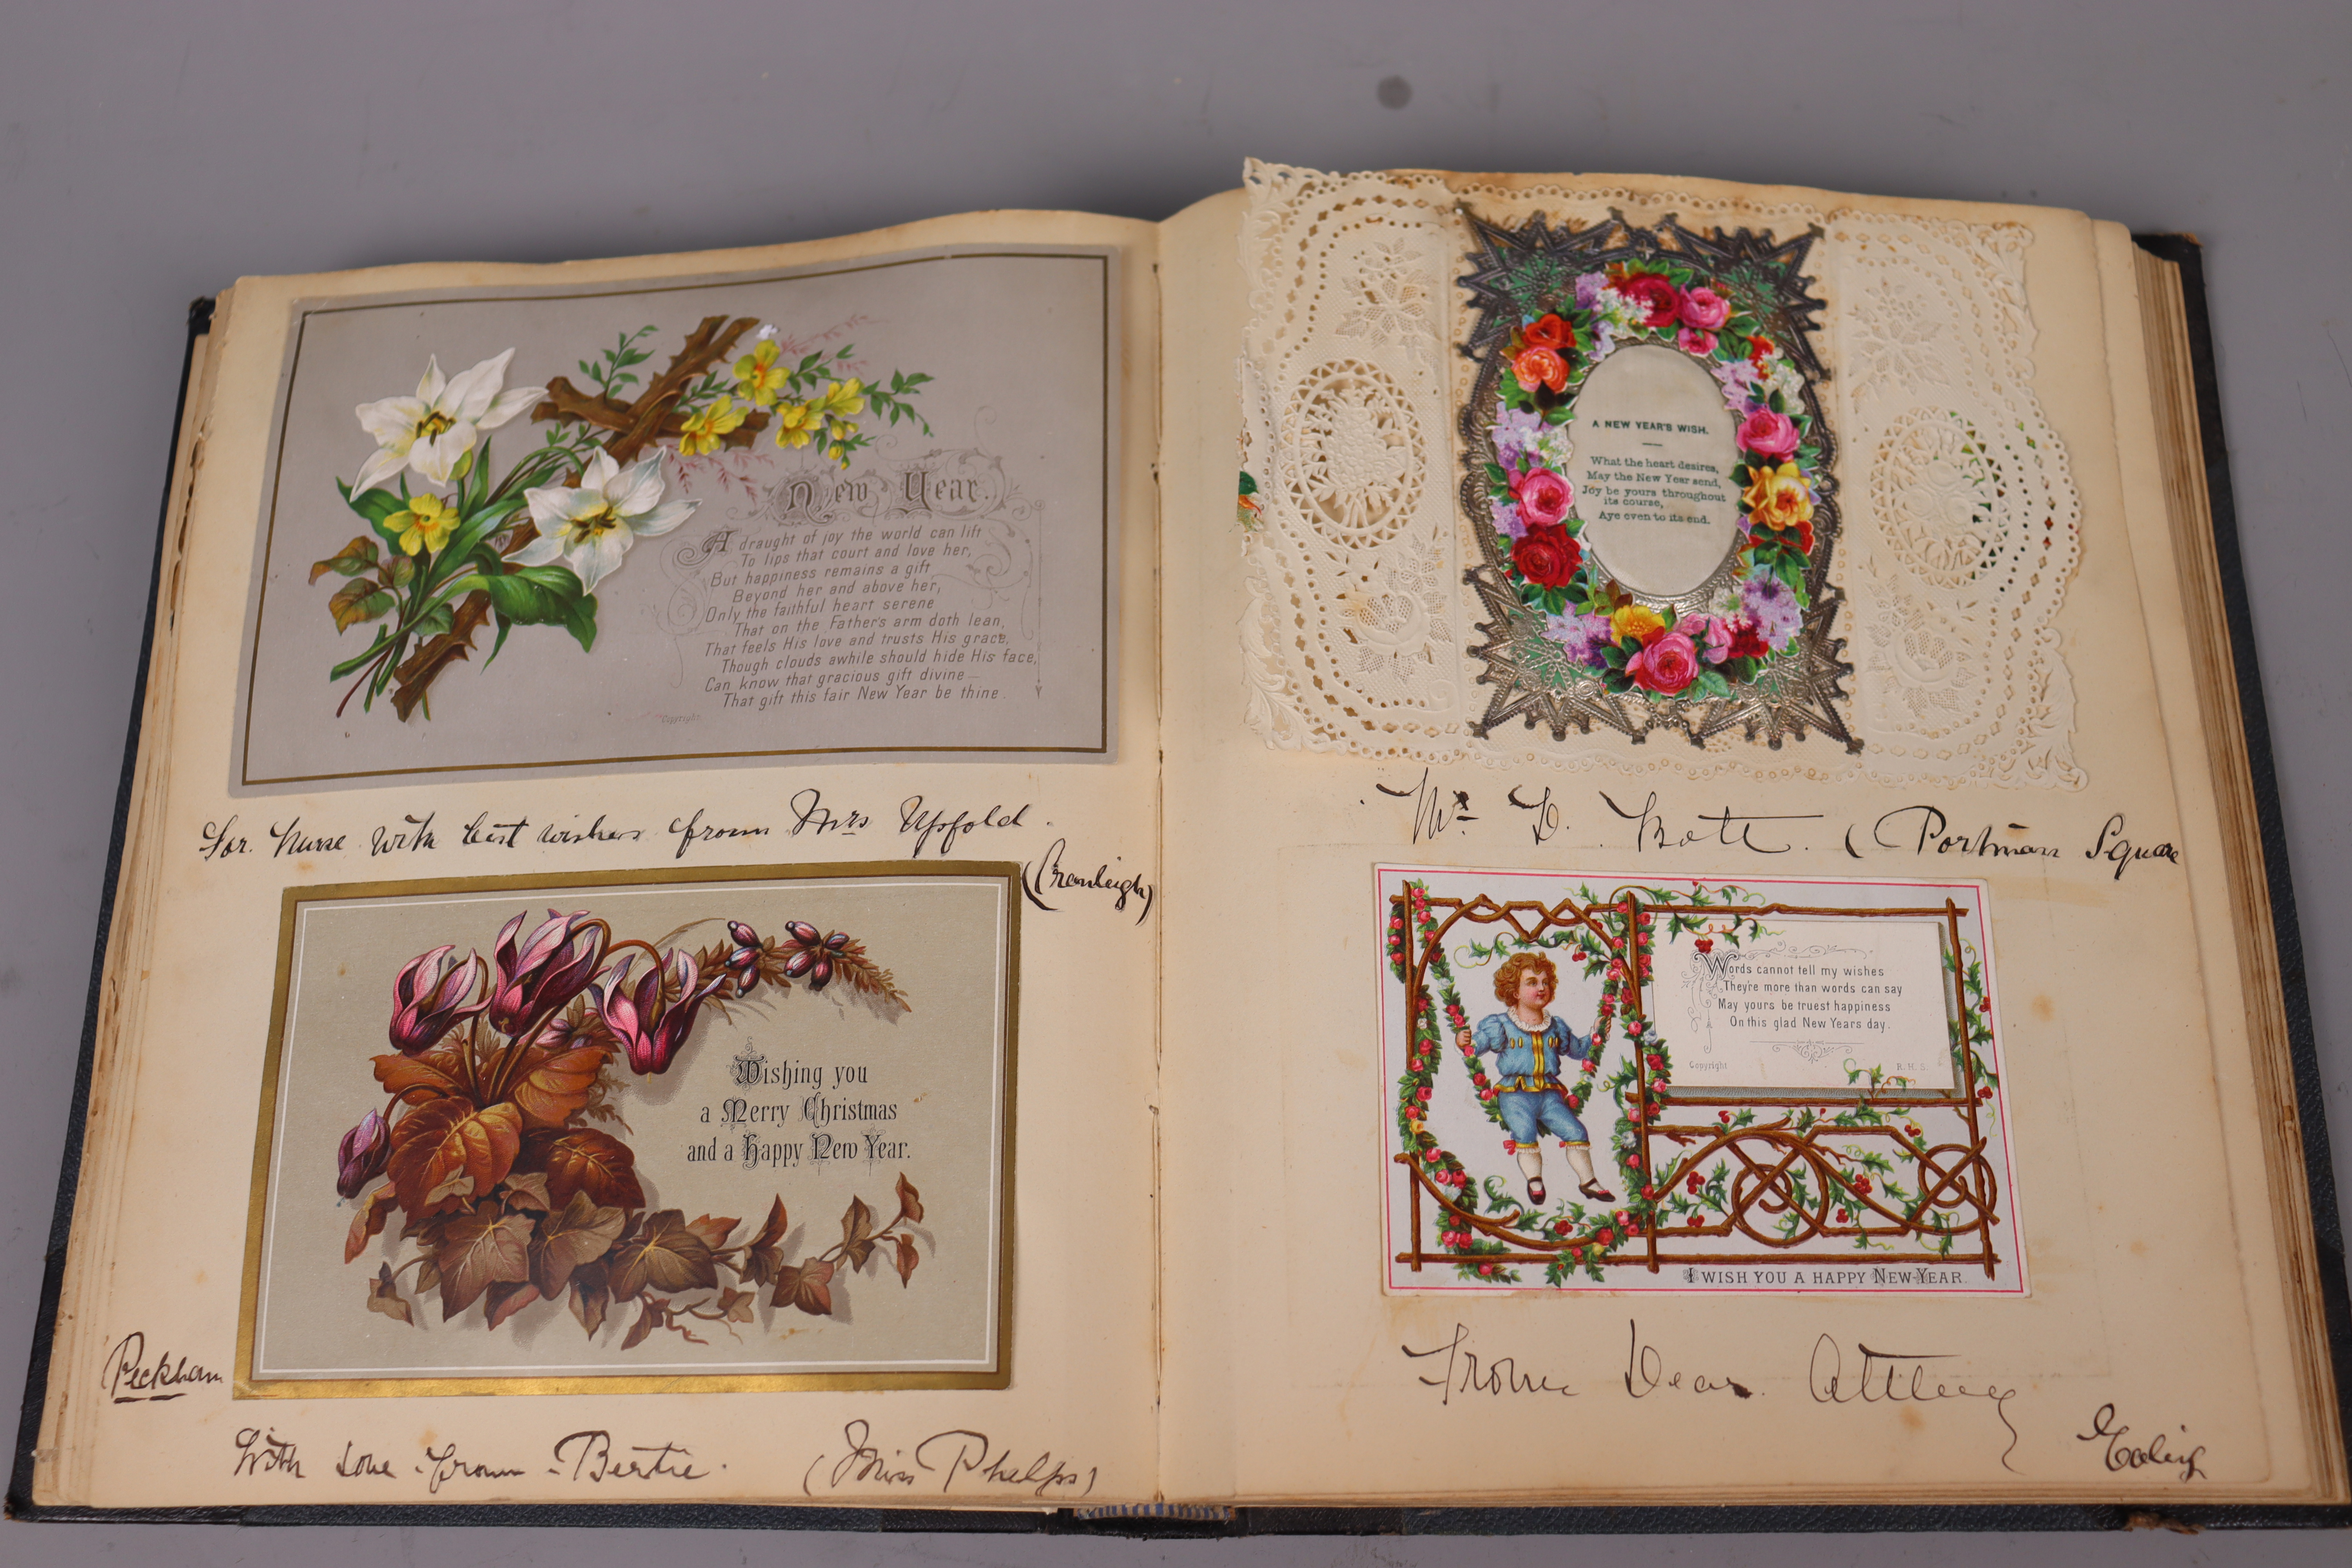 New Year.
A draught of joy the world can lift
To lips that court and love her,
But happiness remains a gift
Beyond her and above her,
Only the faithful heart serene
That on the Father's arm doth lean,
That feels His love and trusts His grace,
Though clouds awhile should hide His face,
Can know that gracious gift divine—
That gift this fair New Year be thine.
Copyright
For Nurse with best wishes from Mrs Upfold.
(Cranleigh)
Wishing you
a Merry Christmas
and a Happy New Year.
Peckham
With love from Bertie. (Miss Phelps)
A NEW YEAR'S WISH.
What the heart desires,
May the New Year send,
Joy be yours throughout
its course,
Aye even to its end.
D. Bott. (Portman Square
Words cannot tell my wishes
They're more than words can say
May yours be truest happiness
On this glad New Years day.
Copyright R. H. S.
I WISH YOU A HAPPY NEW-YEAR.
From Dear
Ealing